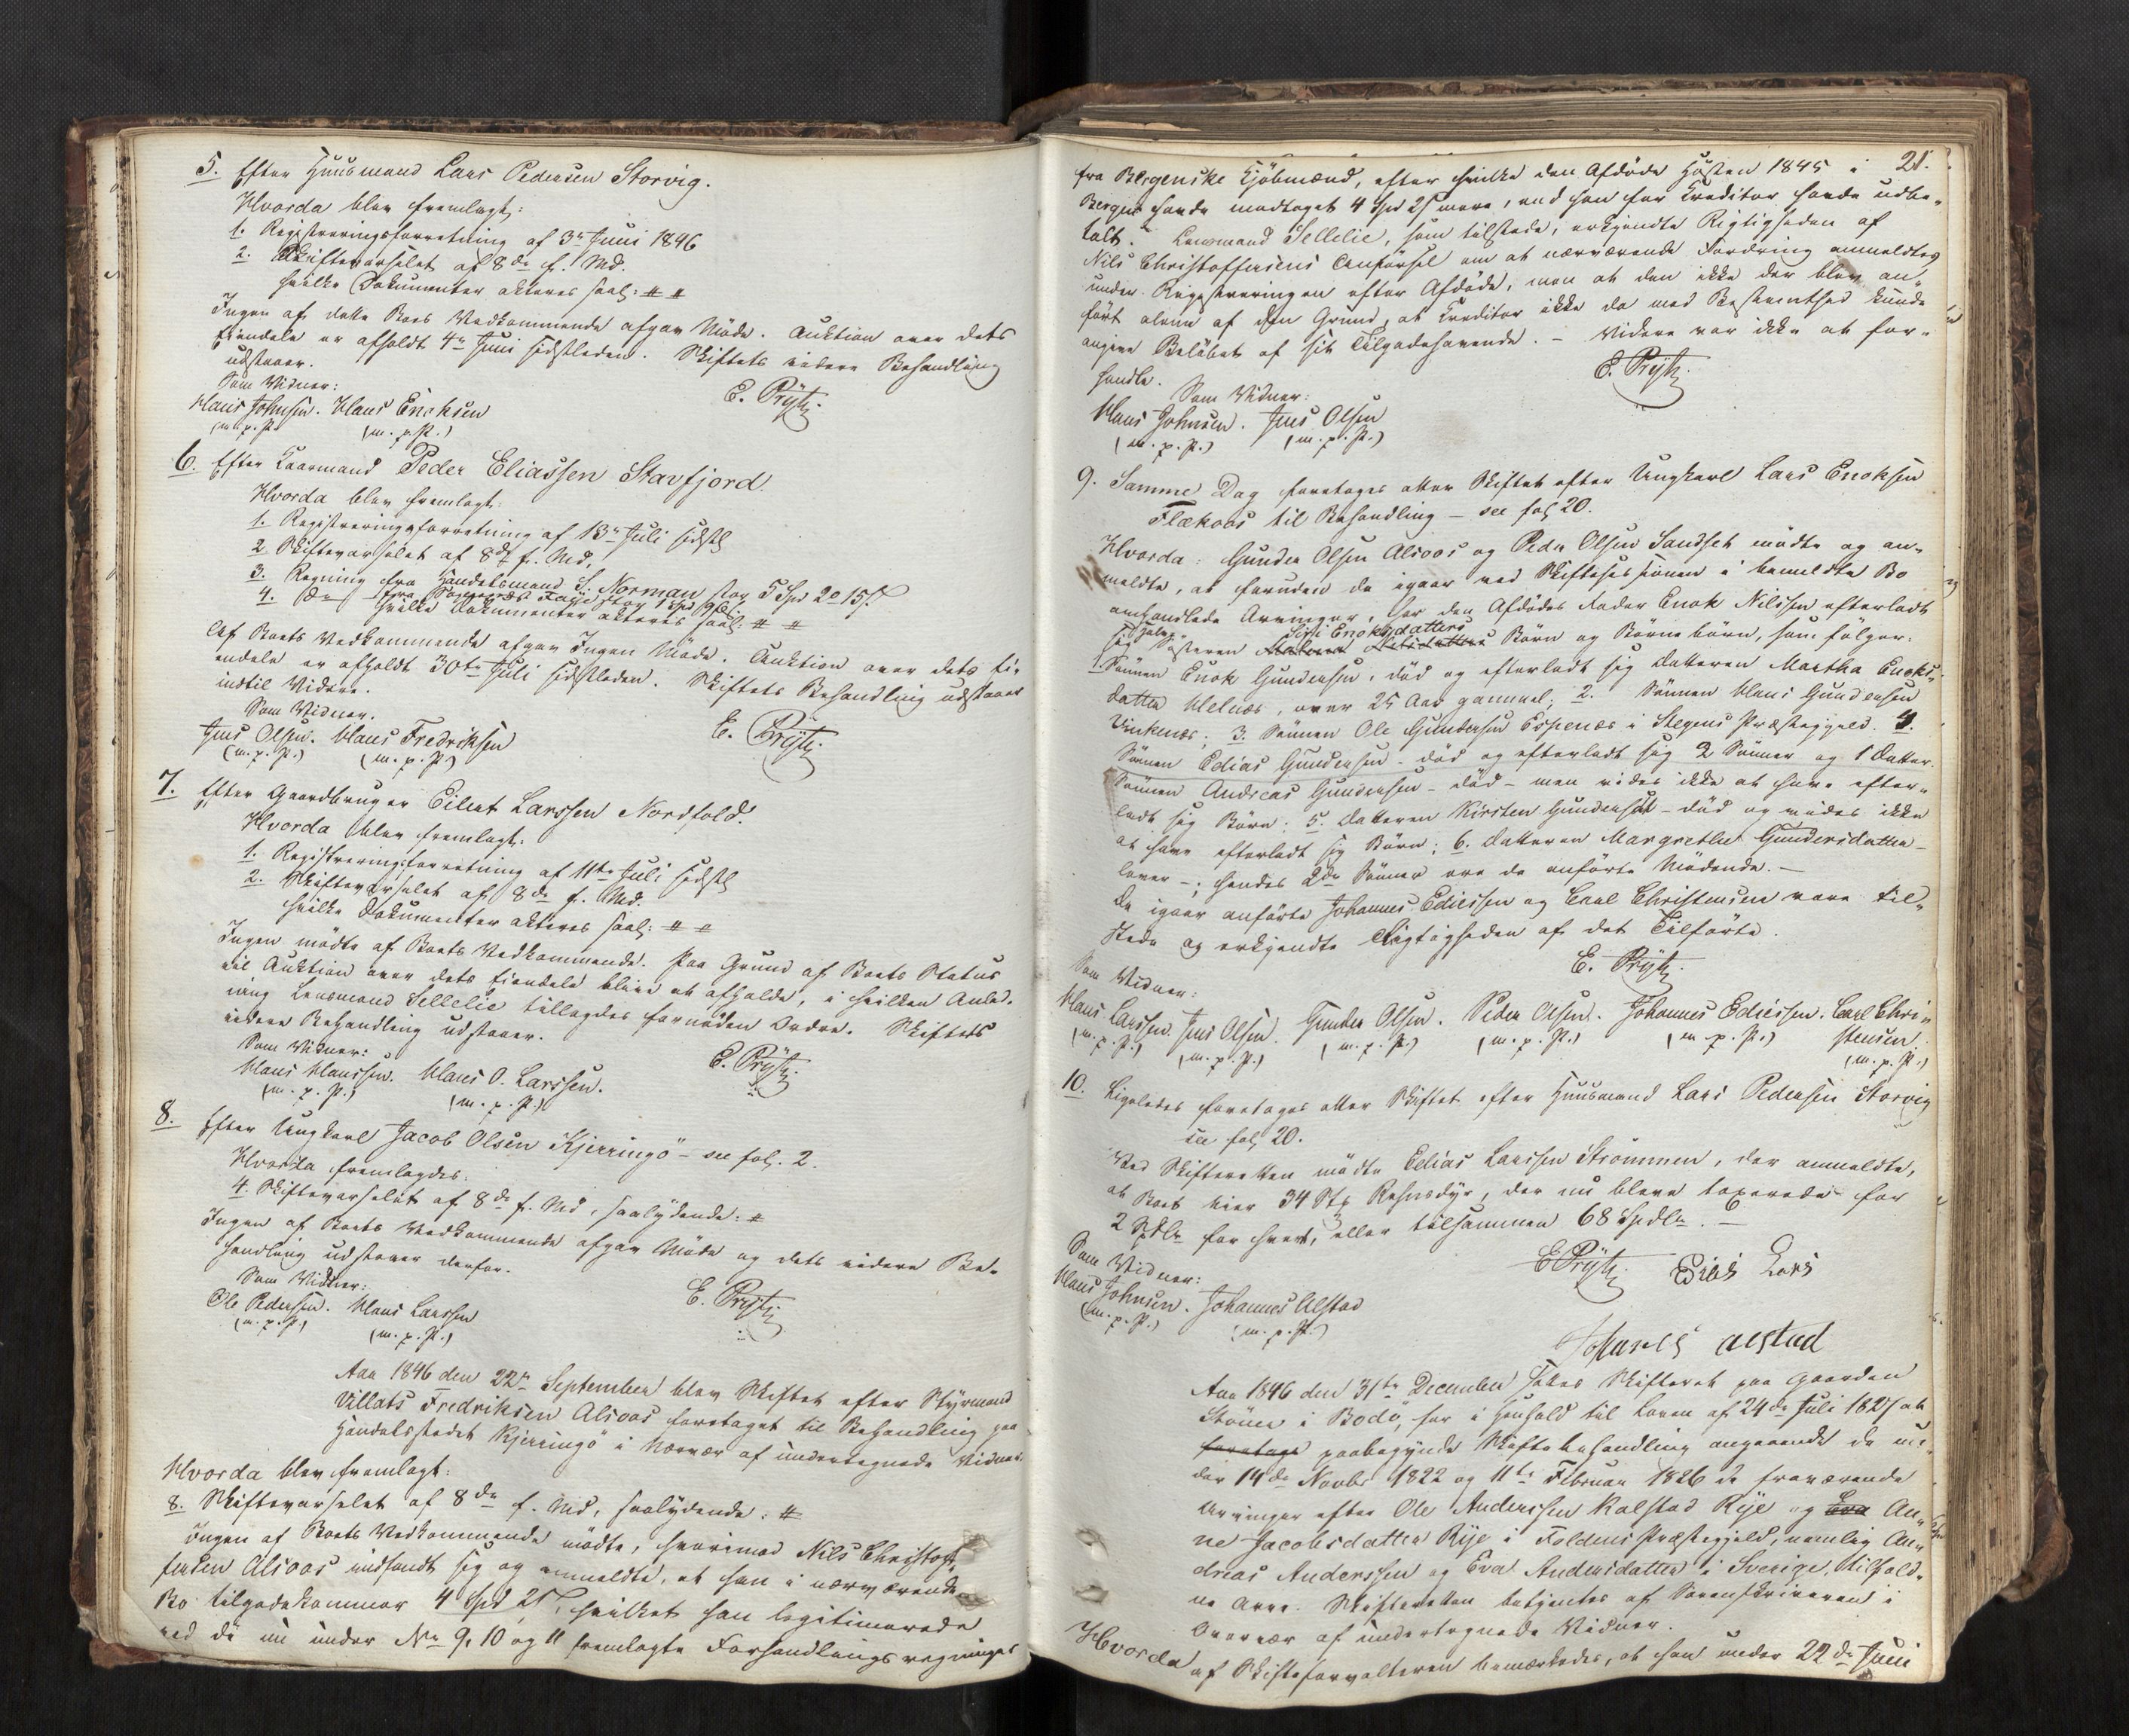 5. Efter Huusmand Lars Pedersen Storvig.
Hvorda blev fremlagt:
1. Registreringsforretning af 3de Juni 1846
2. Skiftevarselet af 8de f. Md.
hvilke Dokumenter akteres saal: # #
Ingen af dette Boes Vedkommende afgav Møde. Auktion over dets
Eiendele er afholdt 4de Juni sidstleden. Skiftets videre Behandling
udstaaer.
Som Vidner:
Hans Johnsen. Hans Enoksen
(m. p. P.) (m. p. P.)
E. Prÿtz.
6. Efter Kaarmand Peder Eliassen Stavfjord.
Hvorda blev fremlagt:
1. Registreringsforretning af 13de Juli sidstl
2. Skiftevarselet af 8de f. Md,
3. Regning fra Handelsmand S. Norman stor 5 Spd 2 o 15 s.
4. do fra stor 1 Spd
hvilke Dokumenter akteres saal: # #
Af Boets Vedkommende afgav Ingen Møde. Auktion over dets Ei-
endele er afholdt 30te Juli sidstleden. Skiftets Behandling udstaaer
indtil Videre.
Som Vidner.
Jens Olsen. Hans Fredriksen
(m. p. P.) (m. p. P.)
E. Prÿtz.
7. Efter Gaardbruger Eilert Larssen Nordfold.
Hvorda blev fremlagt:
1. Registreringsforretning af 11te Juli sidstl
2. Skiftevarselet af 8de f. Md.
hvilke Dokumenter akteres saal: # #
Ingen mødte af Boets Vedkommende. Paa Grund af Boets Status
vil Auktion over dets Eiendele blive at afholde, i hvilken Anled-
ning Lensmand Sellelie tillagdes fornøden Ordre. Skiftets
videre Behandling udstaaer.
Som Vidner:
Hans Hanssen. Hans O. Larssen.
(m. p. P.) (m. p. P.)
E. Prÿtz.
8. Efter Ungkarl Jacob Olsen Kjerringö - see fol. 2.
Hvorda fremlagdes:
4. Skiftevarselet af 8de f. Md, saalydende: #
Ingen af Boets Vedkommende afgav Møde og dets videre Be-
handling udstaaer derfor.
Som Vidner:
Ole Pedersen. Hans Larssen
(m. p. P.) (m. p. P.)
E. Prÿtz.
Aar 1846 den 22de September blev Skiftet efter Styrmand
Villats Fredriksen Alsoos foretaget til Behandling paa
Handelsstedet Kjerringö i Nærvær af undertegnede Vidner.
Hvorda blev fremlagt:
8. Skiftevarselet af 8de f. Md, saalydende: #
Ingen af Boets Vedkommende mødte, hvorimod Nils Christof-
fersen Alsoos indfandt sig og anmeldte, at han i nærværende
Bo tilgodekommer 4 Spd 2 s, hvilket han legitimerede
ved de nu under No 9, 10 og 11 fremlagte Forhandlingsregninger
21.
fra Bergenske Kjöbmænd, efter hvilke den Afdøde Høsten 1845 i
Bergen havde modtaget 4 Spd 2 s mere, end han for Kreditor havde udbe-
talt. Lensmand Sellelie, som tilstede, erkjendte Rigtigheden af
Nils Christoffersens Anførsel om at nærværende Fordring anmeldtes
under Registreringen efter Afdøde, men at den ikke der blev an-
ført alene af den Grund, at Kreditor ikke da med Bestemthed kunde
angive Beløbet af sit Tilgodehavende. - Videre var ikke at for-
handle.
E. Prÿtz.
Som Vidner:
Hans Johnsen. Jens Olsen
(m. p. P.) (m. p. P.)
9. Samme Dag foretoges atter Skiftet efter Ungkarl Lars Enoksen
Flækoos til Behandling - see fol 20.
Hvorda: Gunder Olsen Alsoos og Peder Olsen Sandset mødte og an-
meldte, at foruden de igaar ved Skiftesessionen i bemeldte Bo
omhandlede Arvinger, har den Afdødes Fader Enok Nilssen efterladt
Siri Enoksdatters
sig Søsteren Børn og Børnebørn, som følger:
1. Sønnen Enok Gundersen, død og efterladt sig Datteren Martha Enoks-
datter Helnæs, over 25 Aar gammel; 2. Sønnen Hans Gundersen
Vinkenæs; 3. Sønnen Ole Gundersen Espenæs i Stegens Præstegjeld. 4.
Sønnen Edias Gundersen - død og efterladt sig 2 Sønner og 1 Datter.
Sønnen Andreas Gundersen - død - men vides ikke at have efter-
ladt sig Børn; 5. Datteren Kirsten Gundersdt - død og vides ikke
at have efterladt sig Børn; 6. Datteren Margrethe Gundersdatter -
lever -; hendes 2de Sønner ere de anførte Mødende. -
De igaar anførte Johannes Ediessen og Carl Christensen vare til-
stede og erkjendte Rigtigheden af det Tilførte.
E. Prÿtz.
Som Vidner:
Hans Larssen. Jens Olsen. Gunder Olsen. Peder Olsen. Johannes Ediessen. Carl Chri-
stensen.
(m. p. P.) (m. p. P.) (m. p. P.) (m. p. P.) (m. p. P.) (m. p. P.)
10. Ligeledes foretoges atter Skiftet efter Huusmand Lars Pedersen Storvig
see fol 20.
Ved Skifteretten mødte Edias Larssen Strömmen, der anmeldte,
at Boet eier 34 Stk Rehnsdyr, der nu bleve taxerede for
2 Spdlr for hvert, eller tilsammen 68 Spdlr. -
E Prÿtz. Edias Lars
Som Vidner:
Hans Johnsen. Johannes Alstad
(m. p. P.) (m. p. P.)
Johanes alstad
Aar 1846 den 31te December sattes Skifteret paa Gaarden
Stöver i Bodö, for i Henhold til Loven af 24de Juli 1827 at
foretage paabegynde Skiftebehandling angaaende de un-
der 14de Novbr 1822 og 11te Februar 1826 fraværende
Arvinger efter Ole Anderssen Kalstad Rije og Eva An-
ne Jacobsdatter Rije i Foldens Præstegjeld, nemlig An-
dreas Anderssen og Eva Andersdatter i Sverige, tilfald-
ne Arve. Skifteretten betjentes af Sorenskriveren i
Overvær af undertegnede Vidner.
Hvorda af Skifteforvalteren bemærkedes, at han under 22de Juni